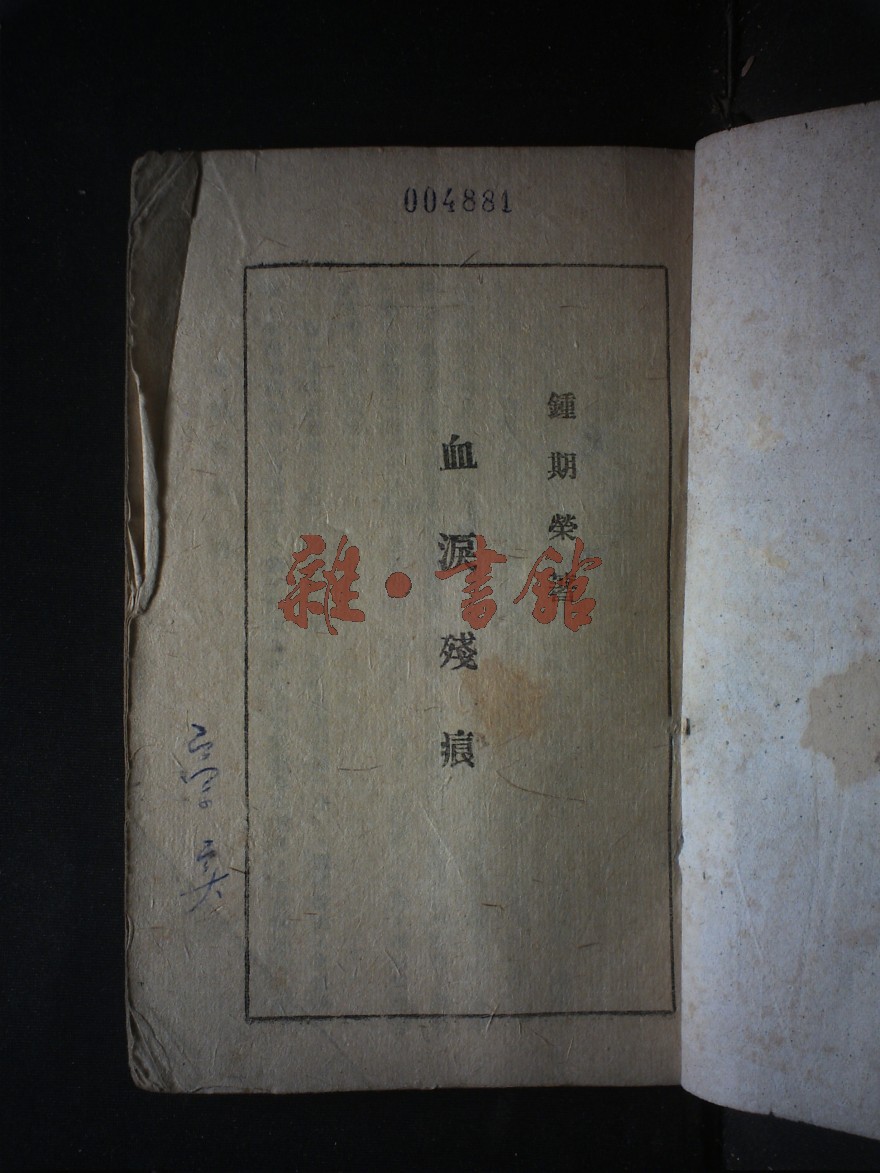 004881
鍾期榮著
血淚殘痕
雜·書館